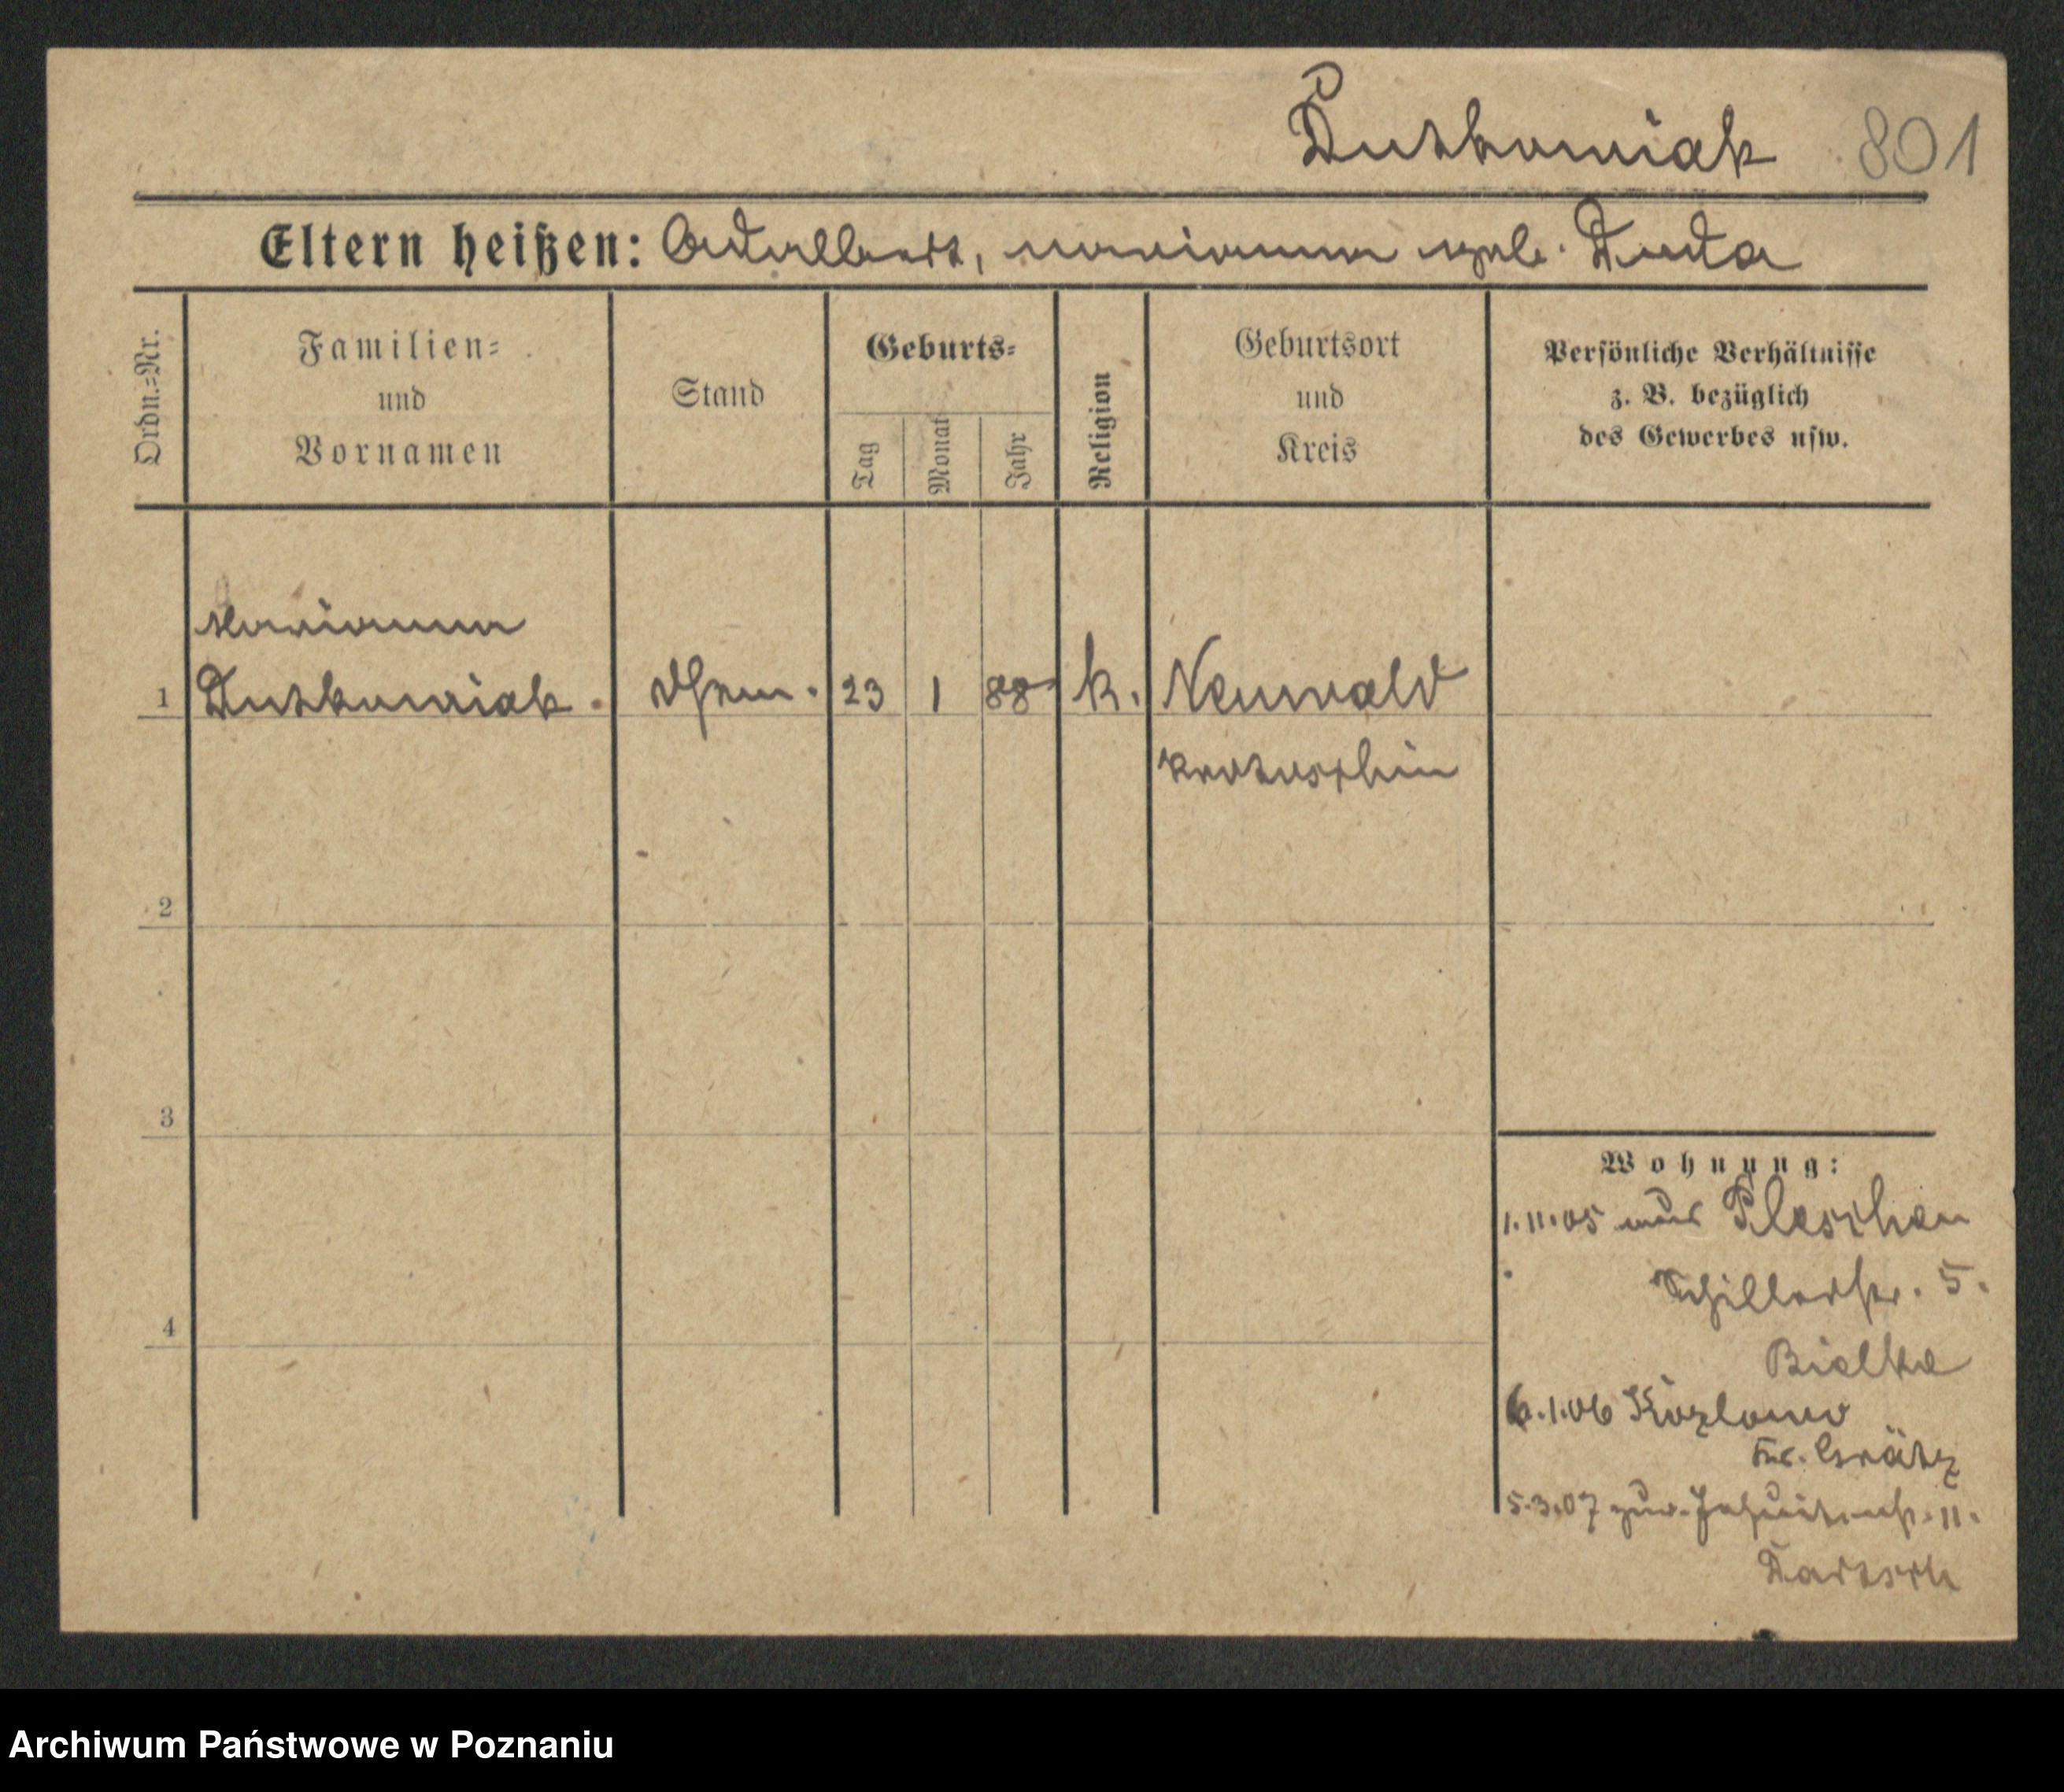 Dutkowiak 801
Eltern heißen: Adalbert, Marianna geb. Duda
Ordn.-Nr.
Familien- und Vornamen
Stand
Geburts-
Tag
Monat
Jahr
Religion
Geburtsort und Kreis
Persönliche Verhältnisse
z. B. bezüglich
des Gewerbes usw.
Marianna
1 Dutkowiak. 23 1 88 k. Neuwald
Krotoschin
2
3
4
Wohnung:
1.11.05 aus Pleschen
Schillerstr. 5.
Bialke
6.1.06 Kozlowo
Kr. Grätz
5.3.07 zur. Jesuitenstr. 11.
Dartsch
Archiwum Państwowe w Poznaniu